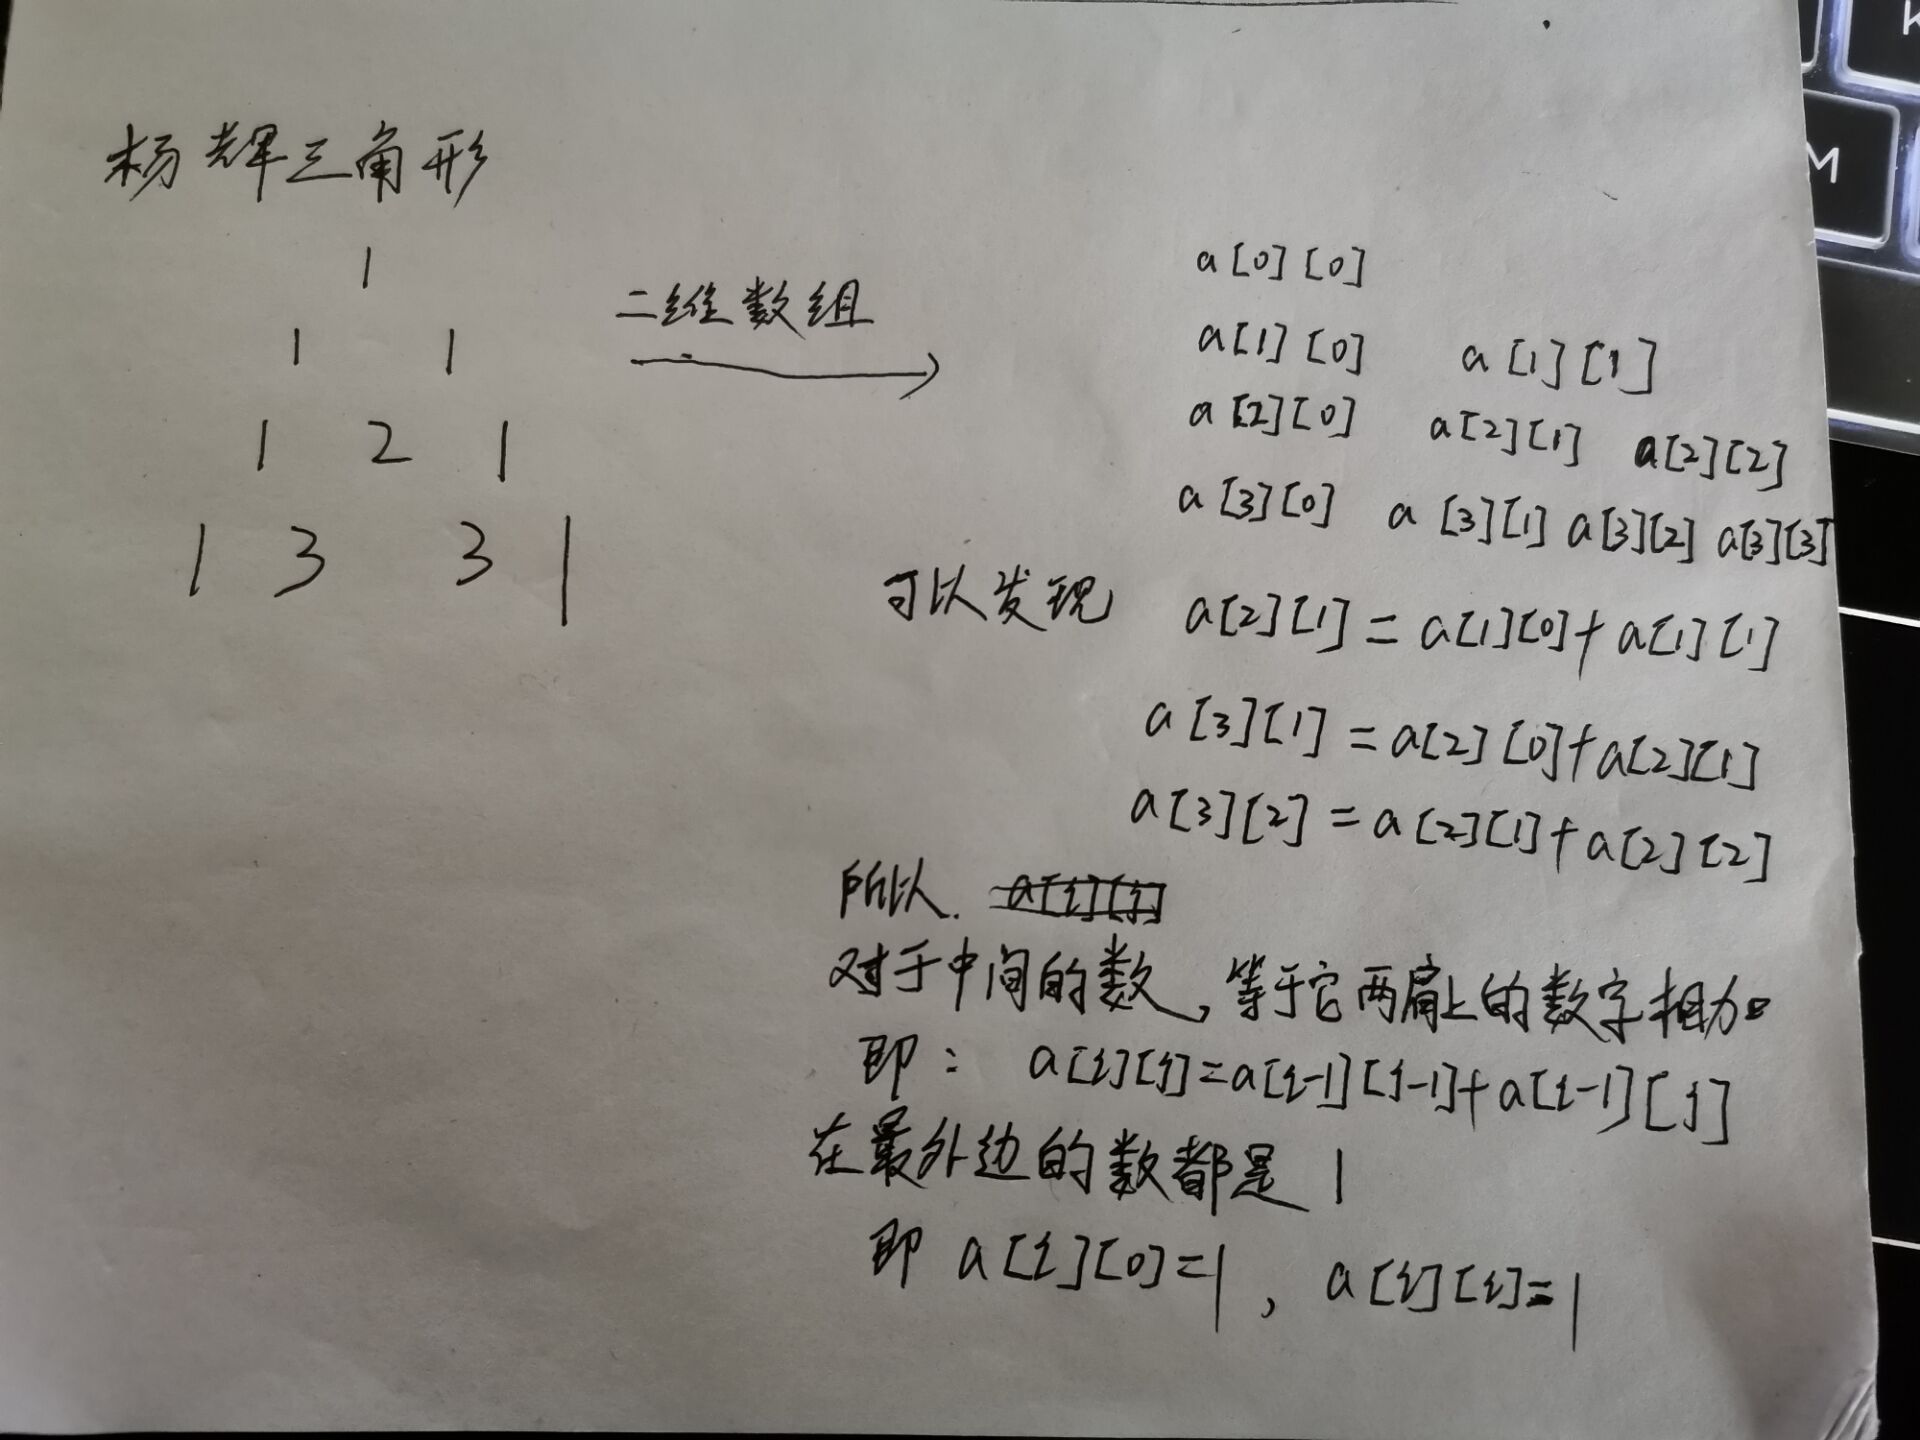 杨辉三角形
1
1 1
1 2 1
1 3 3 1
二维数组
a[0][0]
a[1][0] a[1][1]
a[2][0] a[2][1] a[2][2]
a[3][0] a[3][1] a[3][2] a[3][3]
可以发现 a[2][1]=a[1][0]+a[1][1]
a[3][1]=a[2][0]+a[2][1]
a[3][2]=a[2][1]+a[2][2]
所以. a[i][j]
对于中间的数,等于它两肩上的数字相加。
即: a[i][j]=a[i-1][j-1]+a[i-1][j]
在最外边的数都是1
即 a[i][0]=1, a[i][i]=1
M